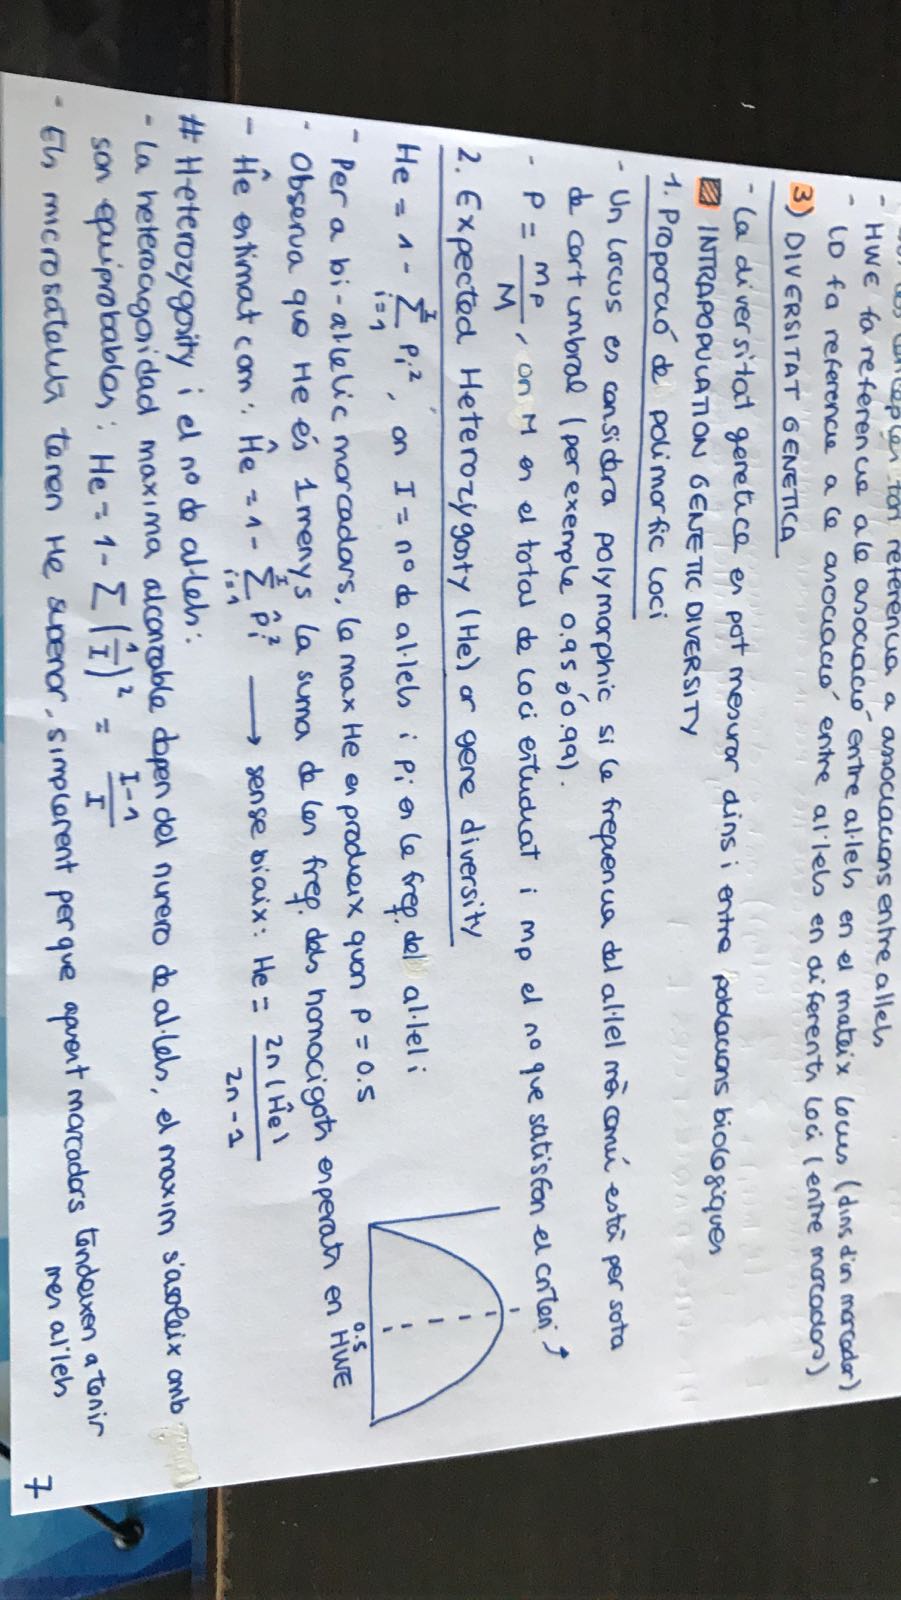 conceptes fan referencia a asociacions entre allels
- HWE fa referencia a la asociació entre al·lels en el mateix locus (dins d'un marcador)
- LD fa referencia a la asociació entre al·lels en diferents loci (entre marcadors)
3) DIVERSITAT GENETICA
- La diversitat genetica es pot mesurar dins i entre poblacions biologiques
INTRAPOPULATION GENETIC DIVERSITY
1. Proporció de polimorfic loci
- Un locus es considera polymorphic si la frequencia del al·lel mès comú està per sota
de cert umbral (per exemple 0.95 ó 0.99).
- P = mp / M, on M es el total de loci estudiat i mp el nº que satisfan el criteri ↑
2. Expected Heterozygosty (He) or gene diversity
He = 1 - Σ(i=1, I) Pi², on I = nº de al·lels i pi es la freq. del al·lel i
- Per a bi-al·lelic marcadors, la max He es produeix quan p = 0.5
0.5
- Observa que He és 1 menys la suma de les freq. dels homocigots esperats en HWE
- Ĥe estimat com: Ĥe = 1 - Σ(i=1, I) p̂i² ⟶ sense biaix: He = 2n(Ĥe) / 2n - 1
# Heterozygosity i el nº de al·lels:
- La heterocigosidad maxima alcanzable depen del numero de al·lels, el maxim s'asoleix amb
son equiprobables: He = 1 - Σ (1/I)² = I-1 / I
- Els microsatelits tenen He superior, simplement perque aquest marcadors tendeixen a tenir
mes al·lels
7